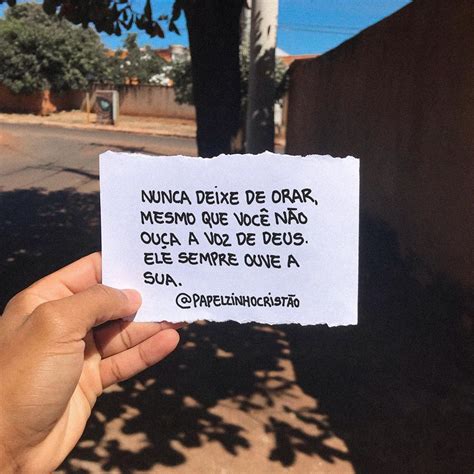 NUNCA DEIXE DE ORAR,
MESMO QUE VOCÊ NÃO
OUÇA A VOZ DE DEUS.
ELE SEMPRE OUVE A
SUA.
@PAPELZINHOCRISTÃO